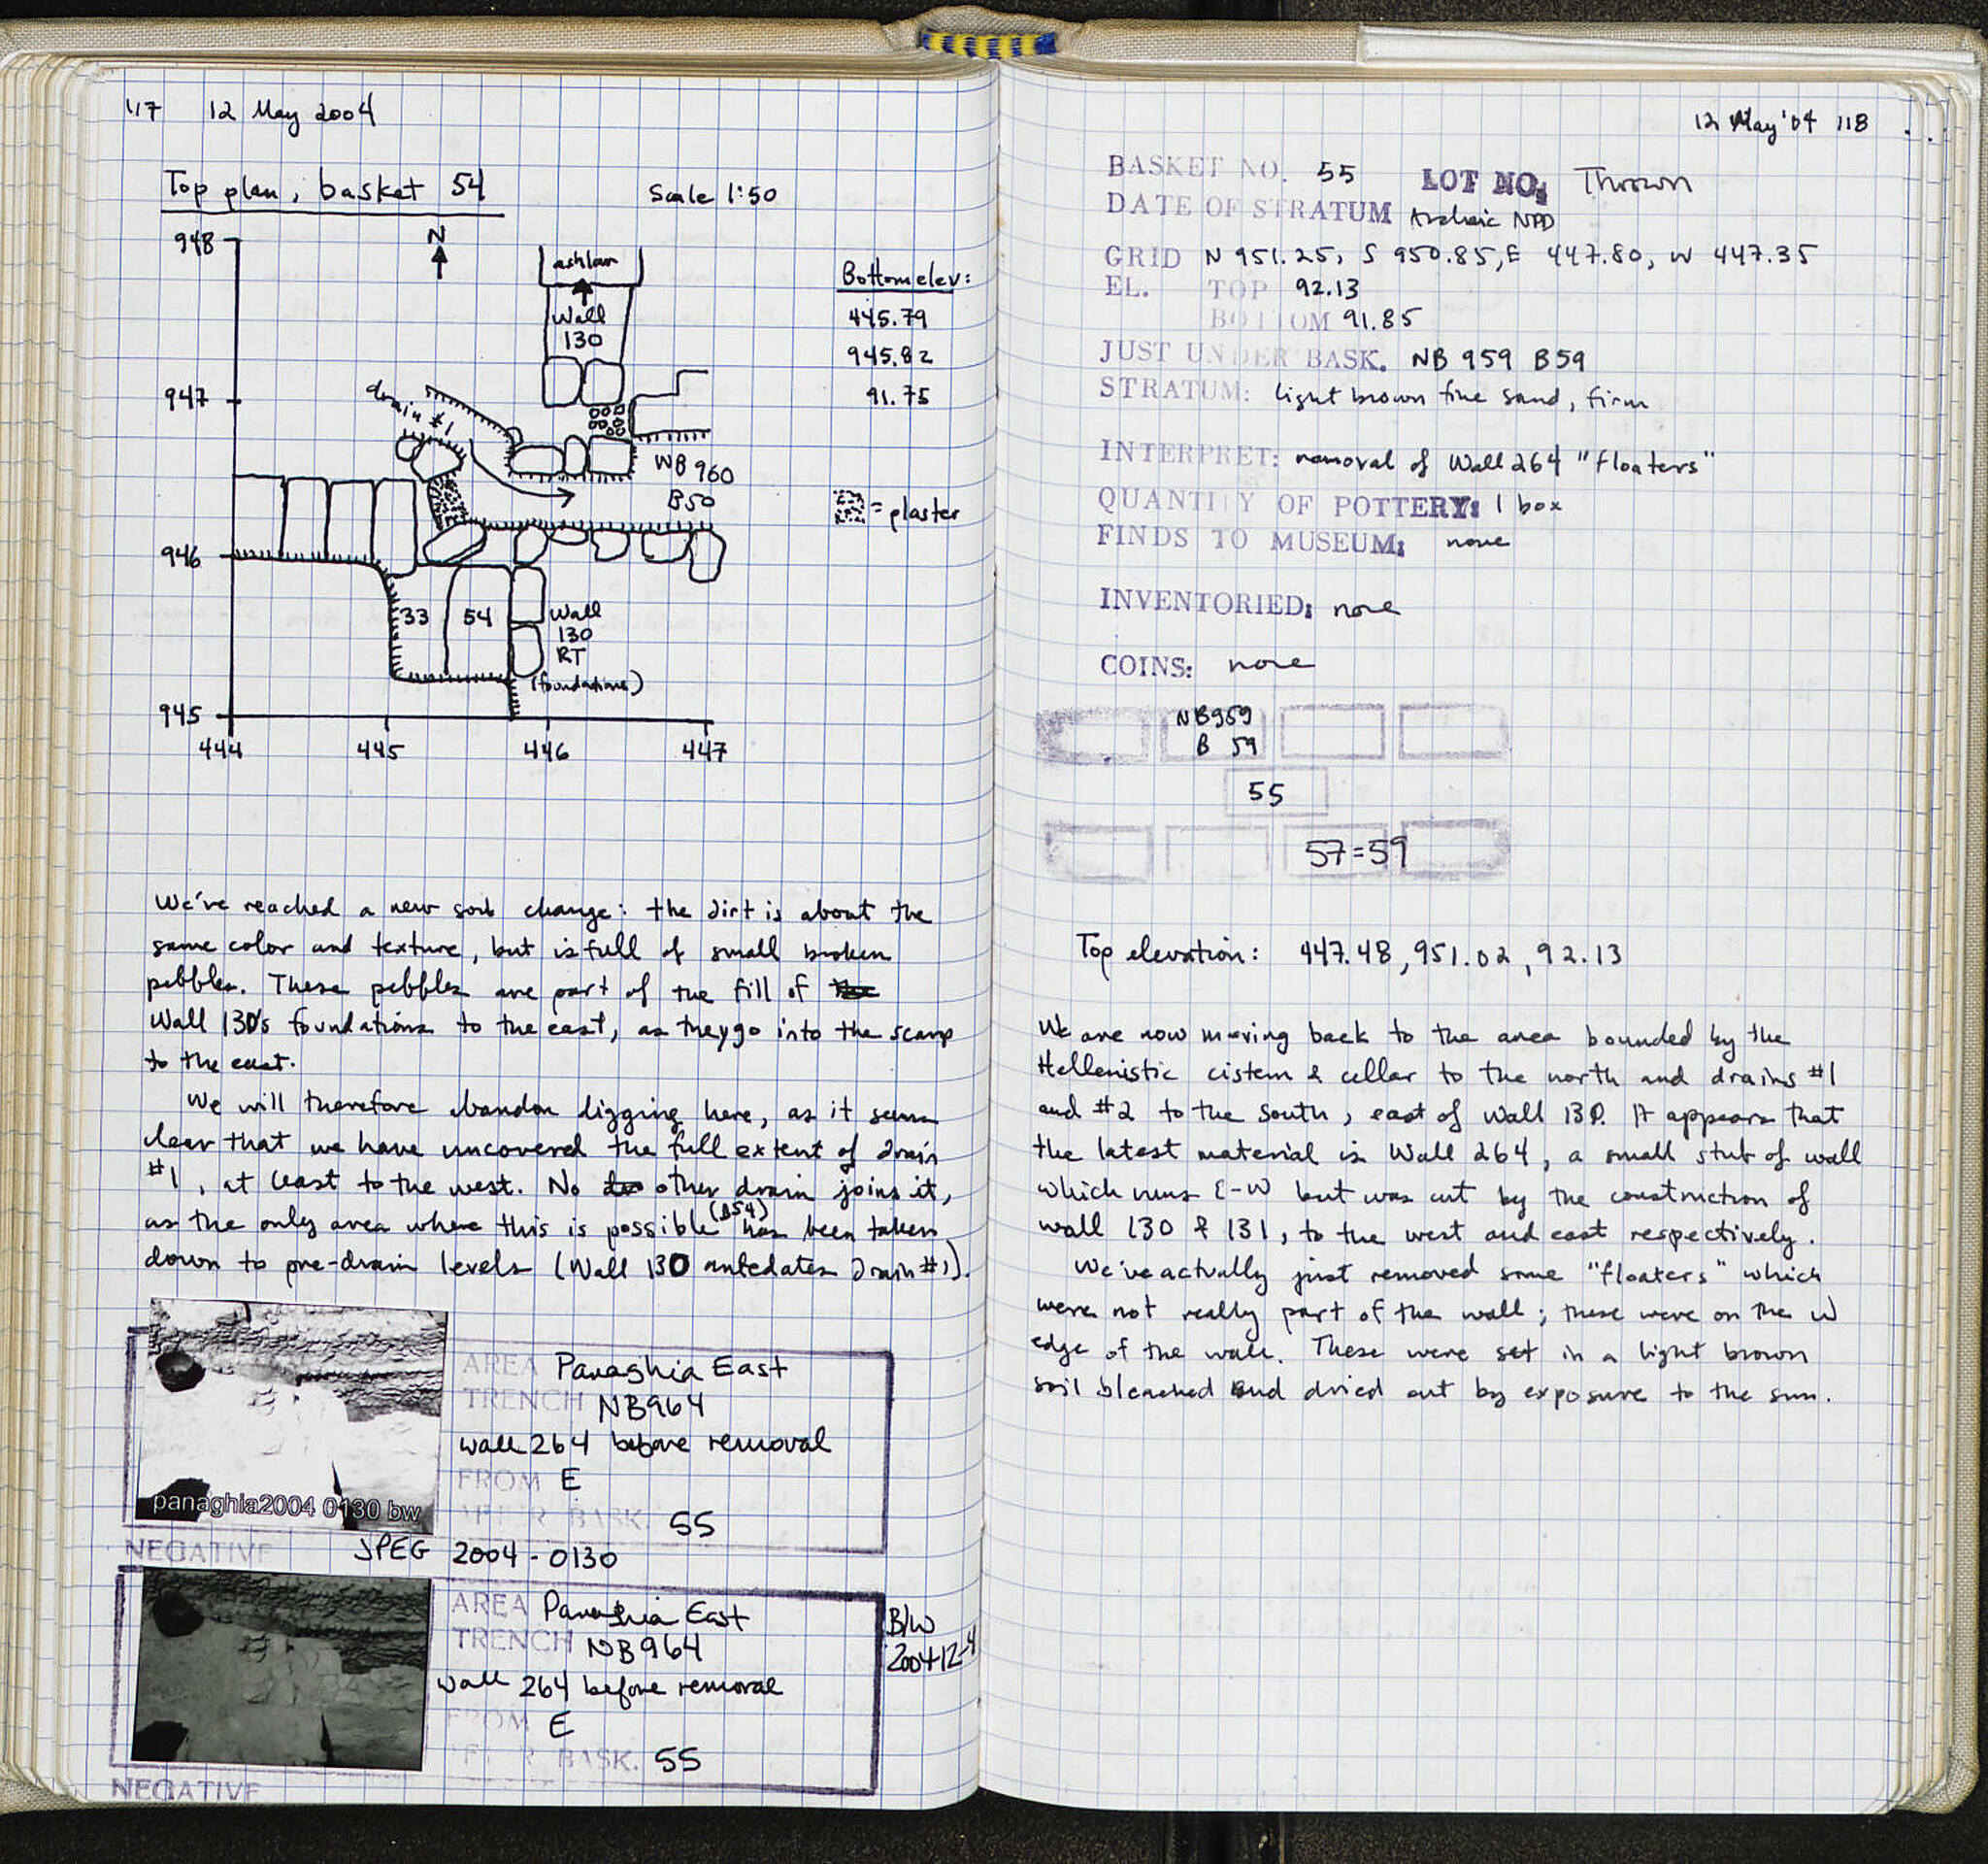 117 12 May 2004
Top plan, basket 54 Scale 1:50
948
N
ashlar
Wall
130
Bottom elev:
445.79
945.82
91.75
947
drain #1
WB 960
B50
= plaster
946
33 54 Wall
130
RT
(foundations)
945
444 445 446 447
We've reached a new soil change: the dirt is about the
same color and texture, but is full of small broken
pebbles. These pebbles are part of the fill of
Wall 130's foundations to the east, as they go into the scarp
to the east.
We will therefore abandon digging here, as it seems
clear that we have uncovered the full extent of drain
#1, at least to the west. No other drain joins it,
as the only area where this is possible (B54) has been taken
down to pre-drain levels (Wall 130 antedates Drain #1).
AREA Panaghia East
TRENCH NB964
wall 264 before removal
FROM E
AFTER BASK. 55
panaghia2004 0130 bw
NEGATIVE JPEG 2004-0130
AREA Panaghia East
TRENCH NB964
wall 264 before removal
FROM E
AFTER BASK. 55
NEGATIVE
B/W
2004-12-4
12 May '04 118
BASKET NO. 55 LOT NO: Thrown
DATE OF STRATUM Archaic NPD
GRID N 951.25, S 950.85, E 447.80, W 447.35
EL. TOP 92.13
BOTTOM 91.85
JUST UNDER BASK. NB 959 B59
STRATUM: light brown fine sand, firm
INTERPRET: removal of Wall 264 "floaters"
QUANTITY OF POTTERY: 1 box
FINDS TO MUSEUM: none
INVENTORIED: none
COINS: none
NB959
B 59
55
57=59
Top elevation: 447.48, 951.02, 92.13
We are now moving back to the area bounded by the
Hellenistic cistern & cellar to the north and drains #1
and #2 to the south, east of Wall 130. It appears that
the latest material is Wall 264, a small stub of wall
which runs E-W but was cut by the construction of
wall 130 & 131, to the west and east respectively.
We've actually just removed some "floaters" which
were not really part of the wall; these were on the W
edge of the wall. These were set in a light brown
soil bleached and dried out by exposure to the sun.